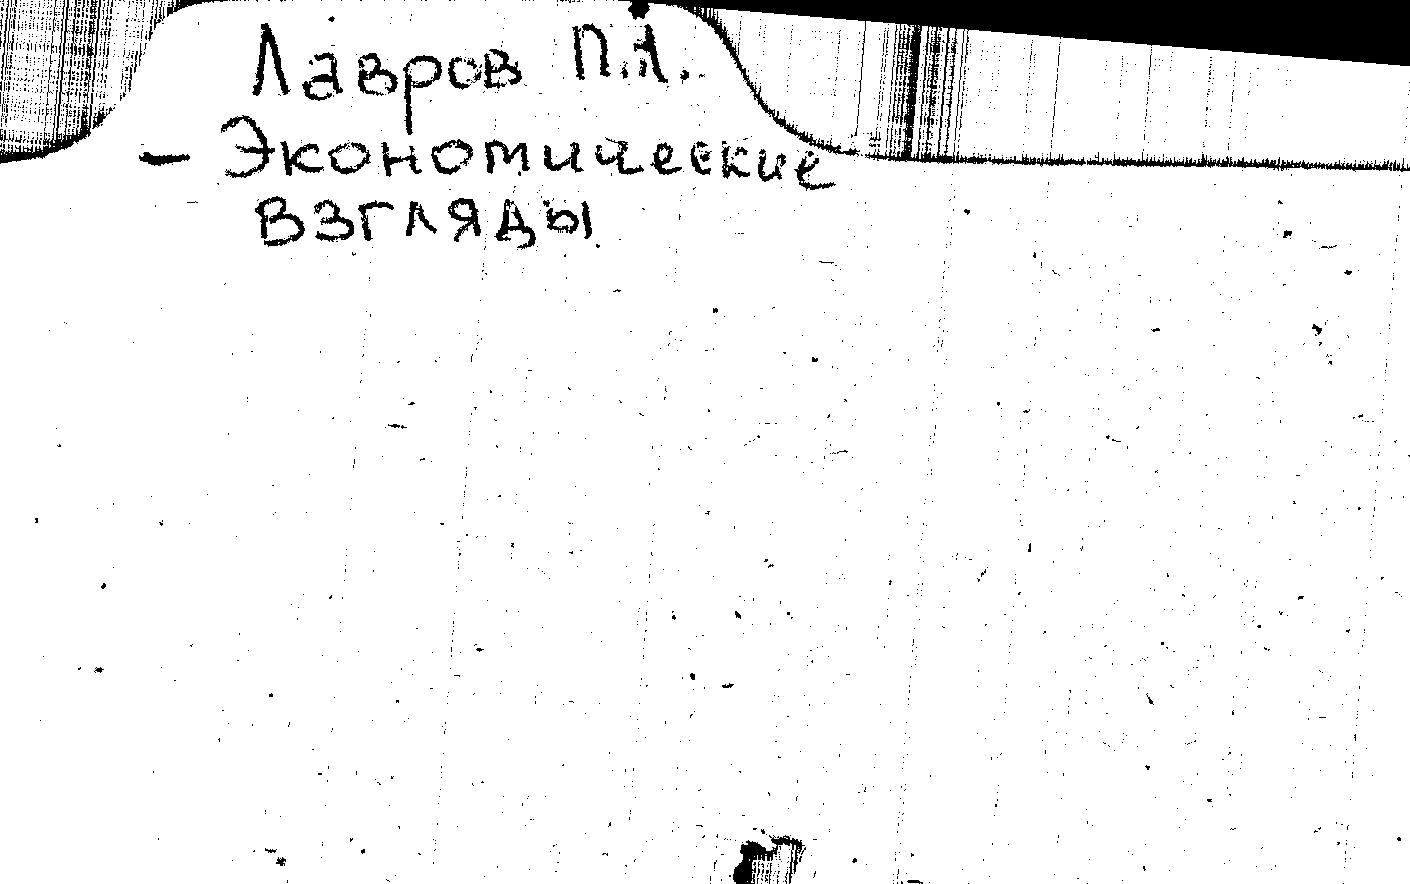 Лавров П.Л.
- Экономические
взгляды